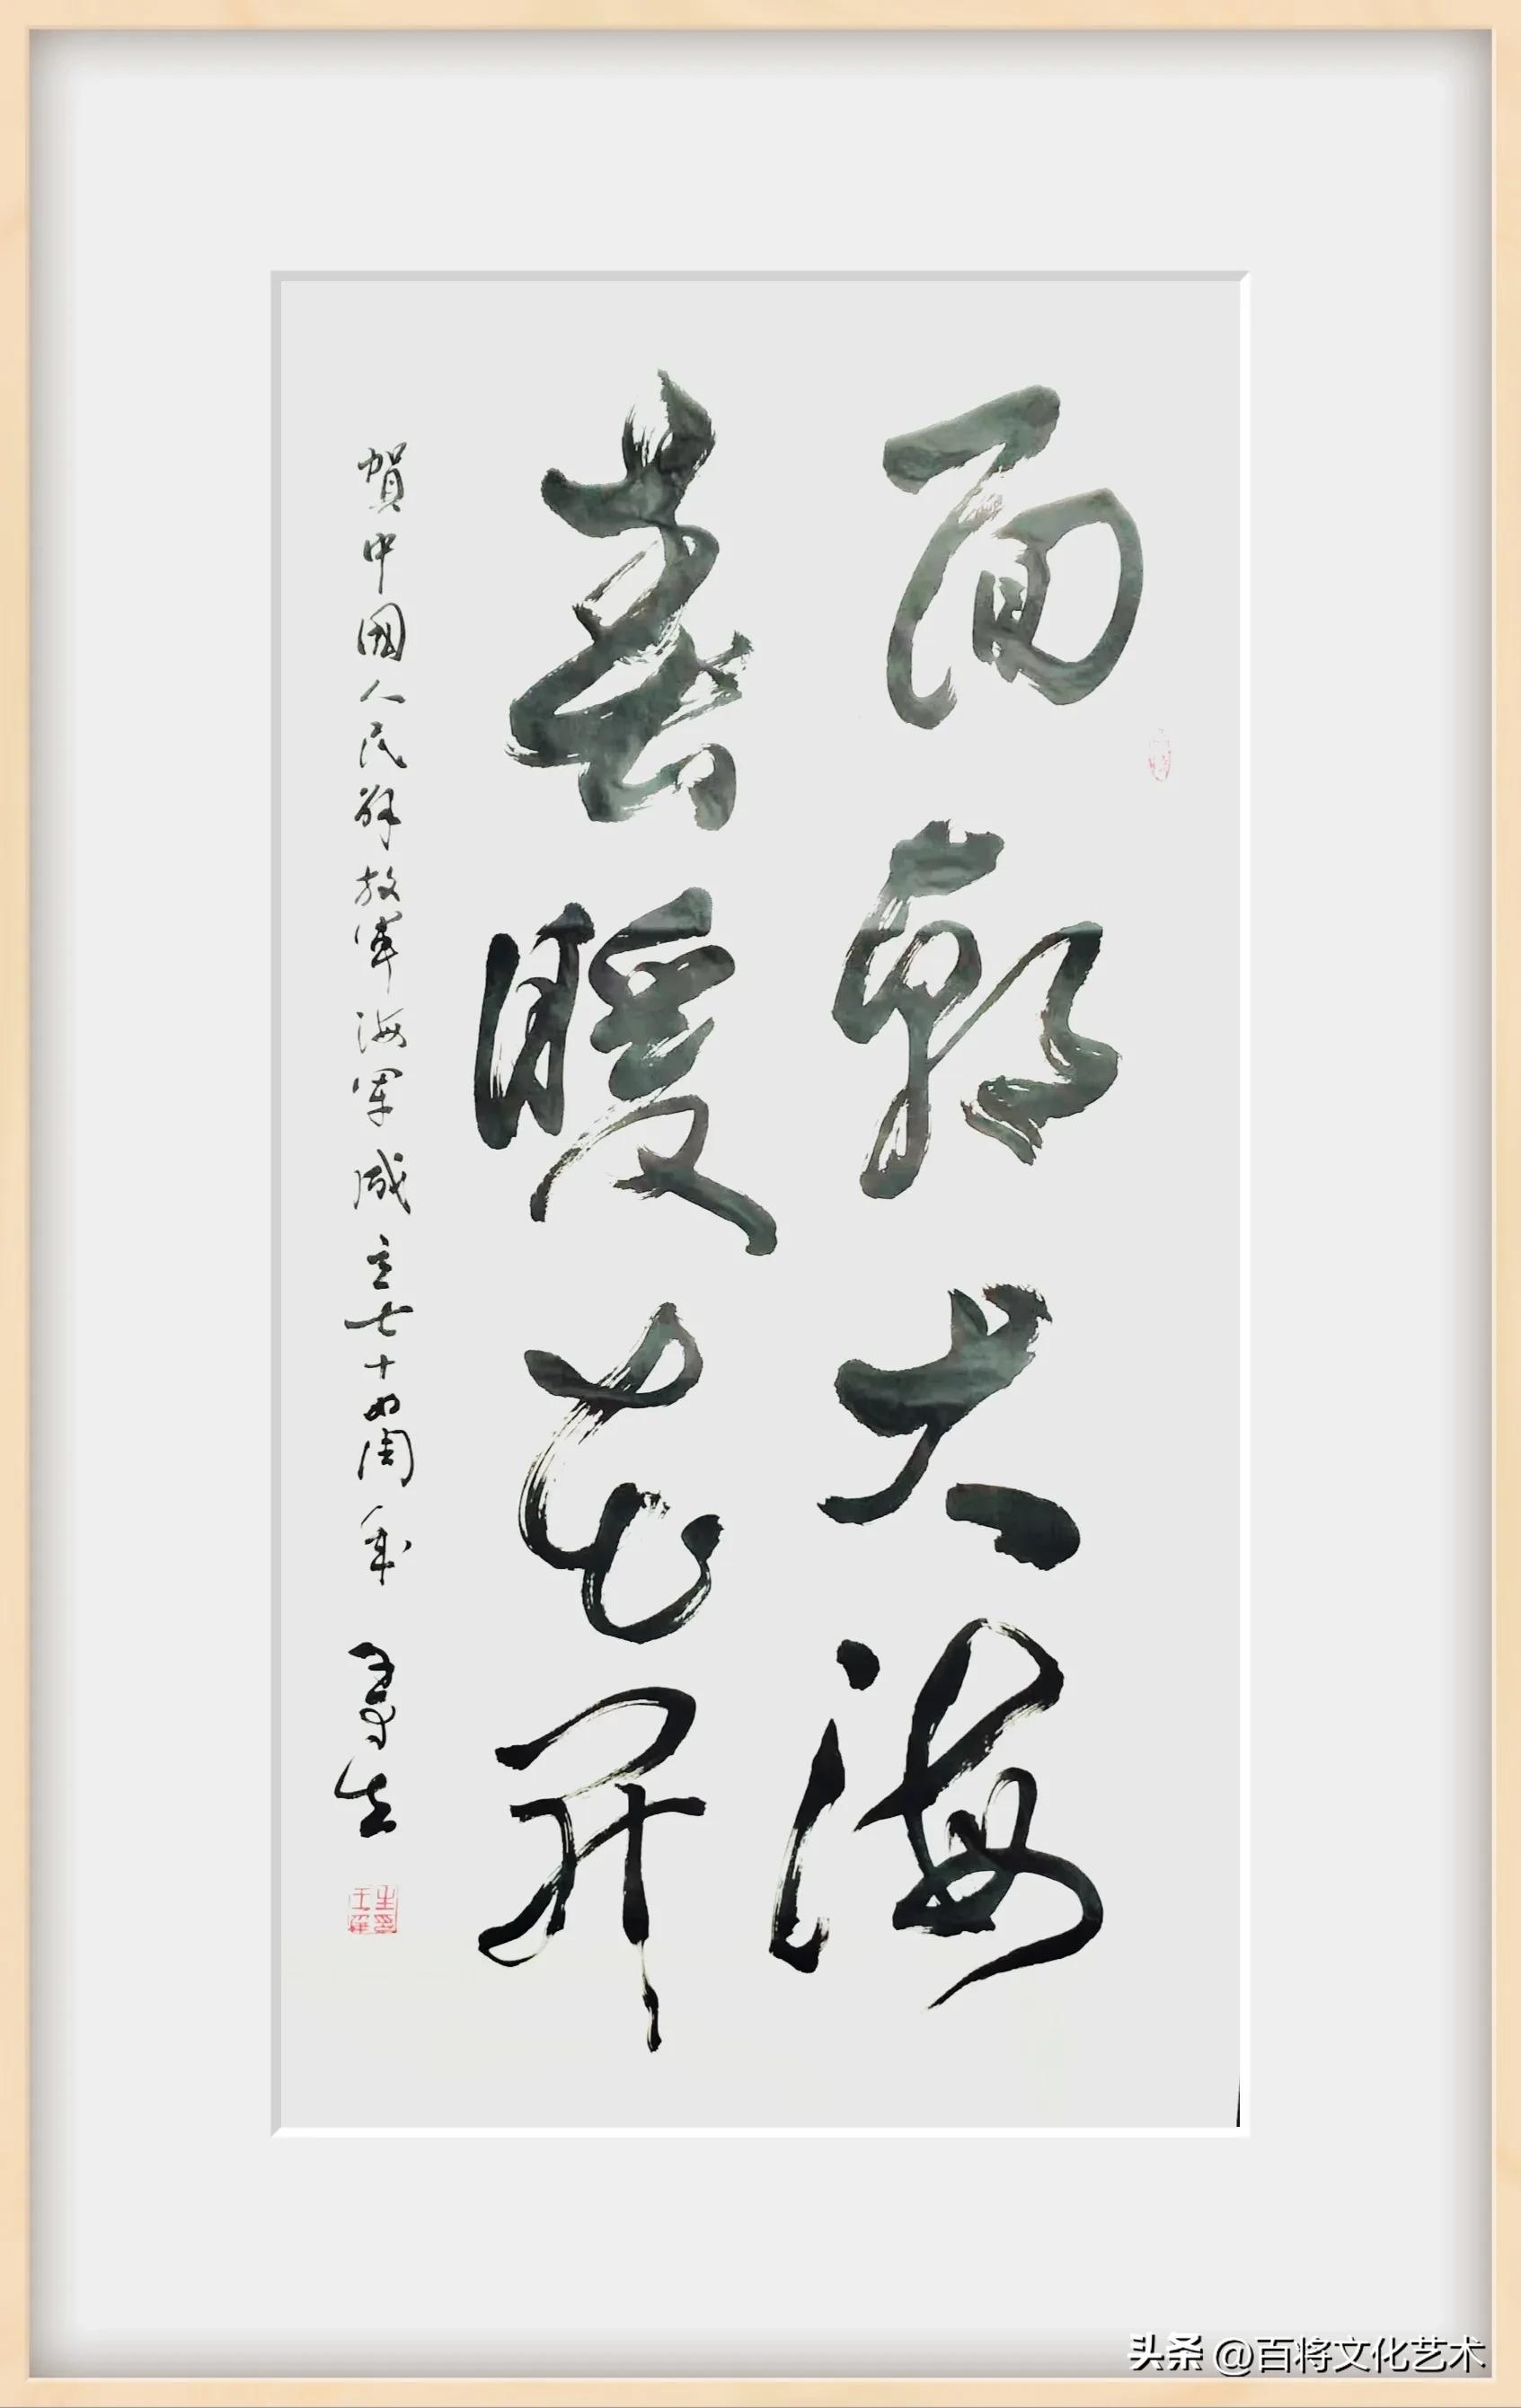 面朝大海
春暖花开
賀中國人民解放軍海軍成立七十四周年
头条 @百将文化艺术